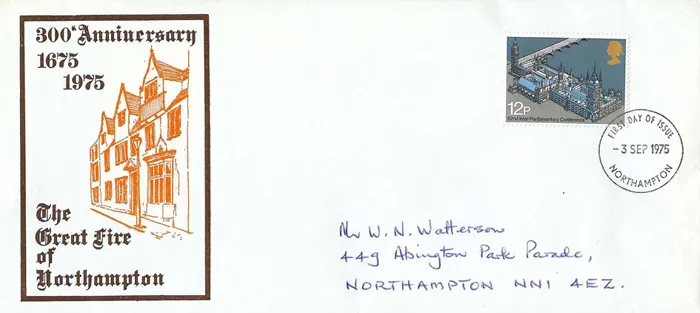 300th Anniversary
1675
1975
The
Great Fire
of
Northampton
12P
62nd Inter-Parliamentary Conference
FIRST DAY OF ISSUE
-3 SEP 1975
NORTHAMPTON
Mr W. N. Watterson
449 Abington Park Parade,
NORTHAMPTON NN1 4EZ.